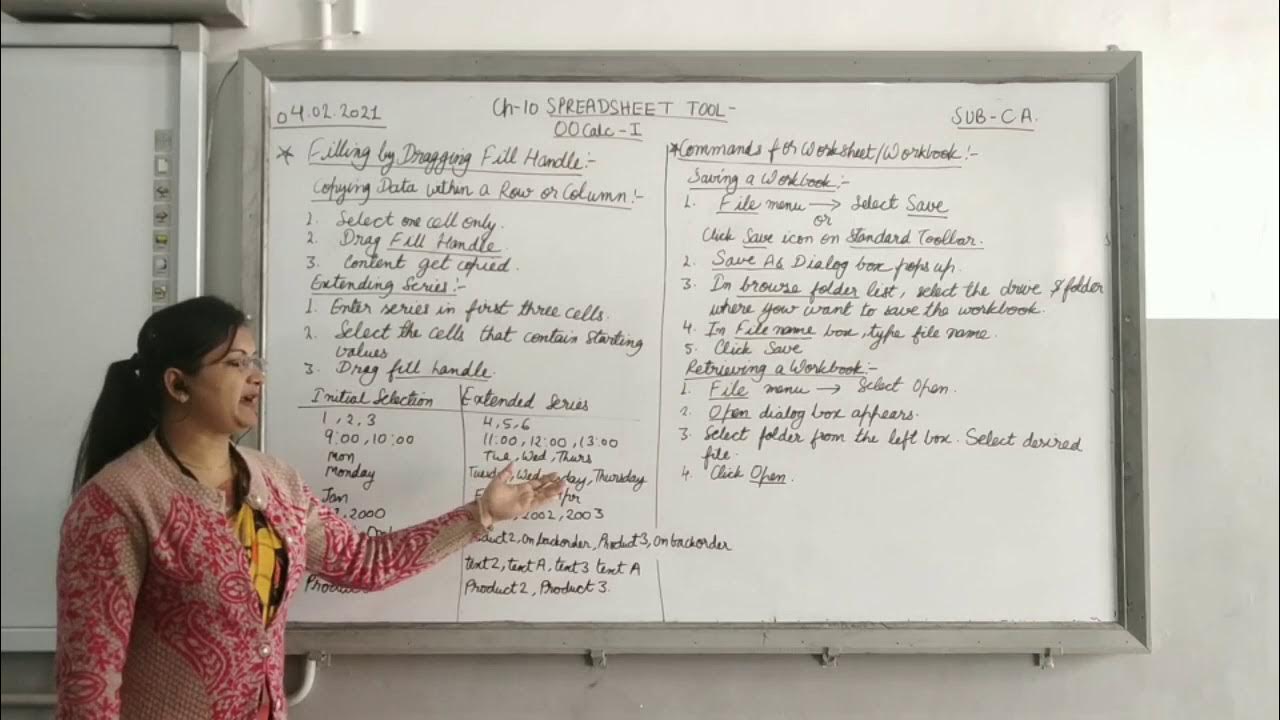 04.02.2021
Ch-10 SPREADSHEET TOOL-
OOCalc-I
SUB-CA.
* Filling by Dragging Fill Handle:-
Copying Data within a Row or Column:-
1. Select one cell only.
2. Drag Fill Handle.
3. Content get copied.
Extending Series:-
1. Enter series in first three cells.
2. Select the cells that contain starting
values
3. Drag fill handle.
Initial Selection Extended Series
1, 2, 3 4, 5, 6
9:00, 10:00 11:00, 12:00, 13:00
Mon Tue, Wed, Thurs
Monday Tuesday, Wednesday, Thursday
Jan
2000 2002, 2003
Product2, On backorder, Product3, On backorder
text2, text A, text3 text A
Product 2, Product 3.
* Commands for Worksheet/Workbook:-
Saving a Workbook:-
1. File menu → Select Save
or
Click Save icon on Standard Toolbar.
2. Save As Dialog box pops up.
3. In browse folder list, select the drive & folder
where you want to save the workbook.
4. In File name box, type file name.
5. Click Save
Retrieving a Workbook:-
1. File menu → Select Open.
2. Open dialog box appears.
3. Select folder from the left box. Select desired
file.
4. Click Open.